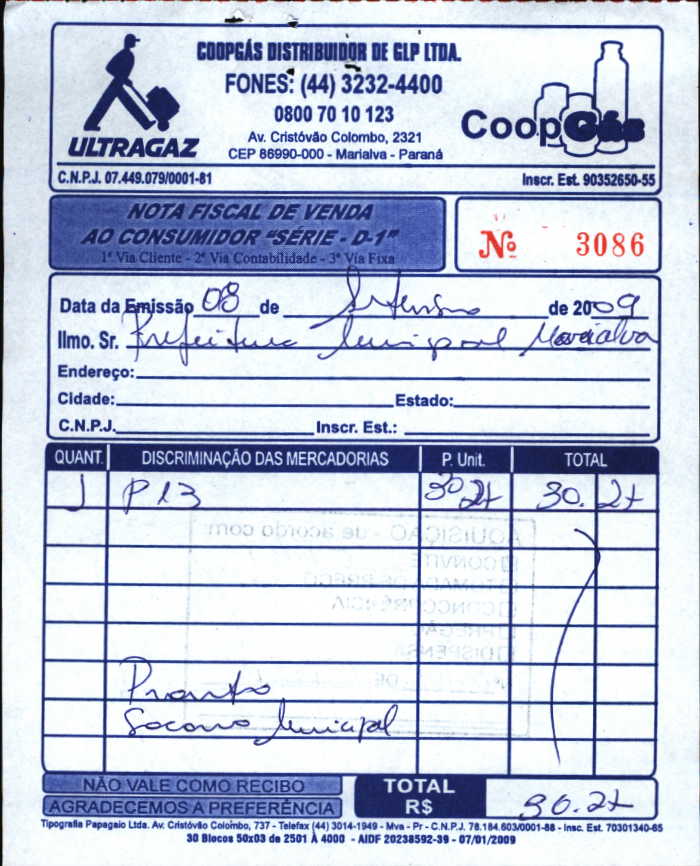 COOPGÁS DISTRIBUIDOR DE GLP LTDA.
FONES: (44) 3232-4400
0800 70 10 123
Av. Cristóvão Colombo, 2321
CEP 86990-000 - Marialva - Paraná
ULTRAGAZ
CoopGás
C.N.P.J. 07.449.079/0001-81
Inscr. Est. 90352650-55
NOTA FISCAL DE VENDA
AO CONSUMIDOR "SÉRIE - D-1"
1ª Via Cliente - 2ª Via Contabilidade - 3ª Via Fixa
Nº 3086
Data da Emissão 08 de Setembro de 2009
Ilmo. Sr. Prefeitura Municipal Marialva
Endereço:
Cidade: Estado:
C.N.P.J. Inscr. Est.:
QUANT. DISCRIMINAÇÃO DAS MERCADORIAS P. Unit. TOTAL
1 P13 30 27 30.27
AQUISIÇÃO - de acordo com:
CONVITE
TOMADA DE PREÇO
CONCORRÊNCIA
PREGÃO
DISPENSA
Nº DE
Pronto
Socorro Municipal
NÃO VALE COMO RECIBO
AGRADECEMOS A PREFERÊNCIA
TOTAL
R$ 30.27
Tipografia Papagaio Ltda. Av. Cristóvão Colombo, 737 - Telefax (44) 3014-1949 - Mva - Pr - C.N.P.J. 78.184.603/0001-88 - Insc. Est. 70301340-65
30 Blocos 50x03 de 2501 À 4000 - AIDF 20238592-39 - 07/01/2009